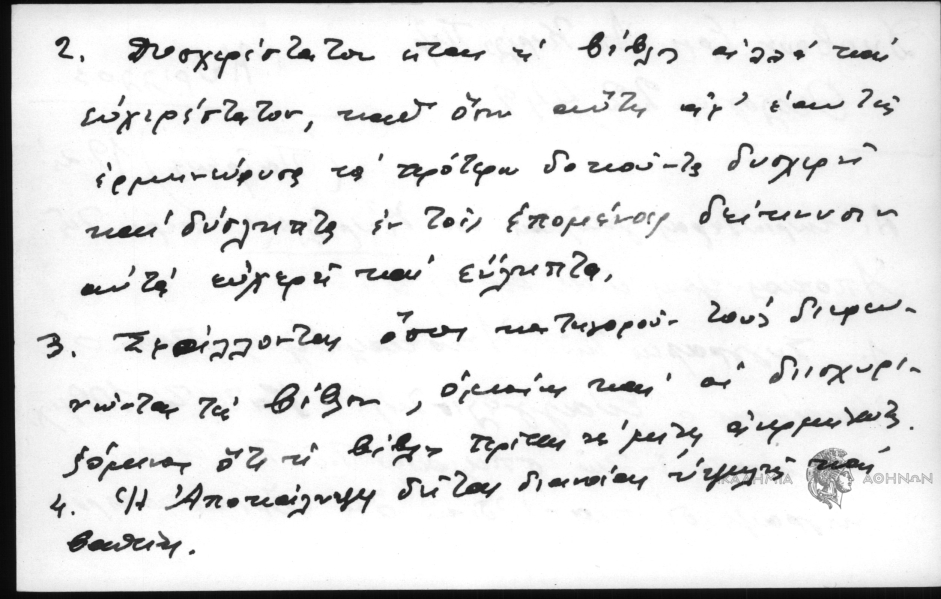 2. Δυσχερέστατον εἶναι ἡ βίβλος ἀλλά καί
εὐχερέστατον, καθ' ὅσον αὕτη ἀφ' ἑαυτῆς
ἑρμηνεύουσα τά πρότερον δοκοῦντα δυσχερῆ
καί δύσληπτα ἐν τοῖς ἑπομένοις δείκνυσιν
αὐτά εὐχερῆ καί εὔληπτα.
3. Σφάλλονται ὅσοι κατηγοροῦν τούς διερευ-
νῶντας τήν βίβλον, ὁμοίως καί οἱ διισχυρι-
ζόμενοι ὅτι ἡ βίβλος πρέπει νά μείνῃ ἀνερμήνευτος.
4. Ἡ Ἀποκάλυψις δεῖται διανοίας ὑψηλῆς καί
βαθείας.
ΑΚΑΔΗΜΙΑ ΑΘΗΝΩΝ